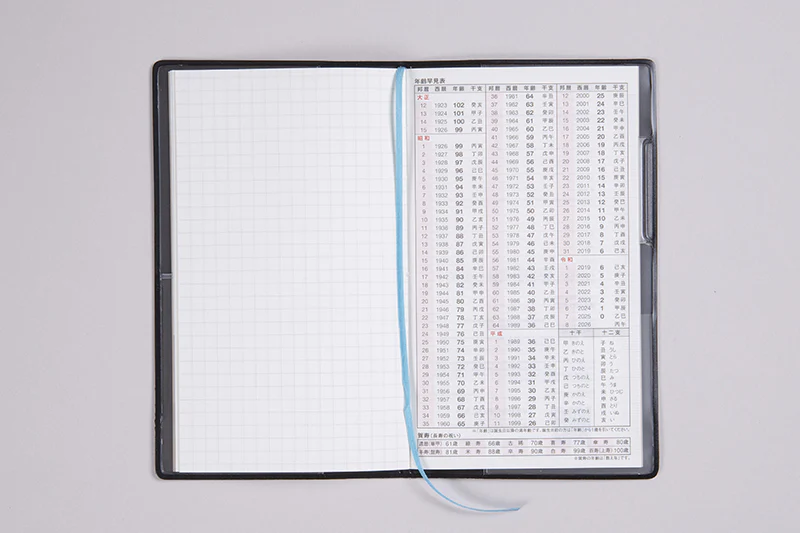 年齢早見表
邦暦 西暦 年齢 干支
大正
12 1923 102 癸亥
13 1924 101 甲子
14 1925 100 乙丑
15 1926 99 丙寅
昭和
1 1926 99 丙寅
2 1927 98 丁卯
3 1928 97 戊辰
4 1929 96 己巳
5 1930 95 庚午
6 1931 94 辛未
7 1932 93 壬申
8 1933 92 癸酉
9 1934 91 甲戌
10 1935 90 乙亥
11 1936 89 丙子
12 1937 88 丁丑
13 1938 87 戊寅
14 1939 86 己卯
15 1940 85 庚辰
16 1941 84 辛巳
17 1942 83 壬午
18 1943 82 癸未
19 1944 81 甲申
20 1945 80 乙酉
21 1946 79 丙戌
22 1947 78 丁亥
23 1948 77 戊子
24 1949 76 己丑
25 1950 75 庚寅
26 1951 74 辛卯
27 1952 73 壬辰
28 1953 72 癸巳
29 1954 71 甲午
30 1955 70 乙未
31 1956 69 丙申
32 1957 68 丁酉
33 1958 67 戊戌
34 1959 66 己亥
35 1960 65 庚子
邦暦 西暦 年齢 干支
36 1961 64 辛丑
37 1962 63 壬寅
38 1963 62 癸卯
39 1964 61 甲辰
40 1965 60 乙巳
41 1966 59 丙午
42 1967 58 丁未
43 1968 57 戊申
44 1969 56 己酉
45 1970 55 庚戌
46 1971 54 辛亥
47 1972 53 壬子
48 1973 52 癸丑
49 1974 51 甲寅
50 1975 50 乙卯
51 1976 49 丙辰
52 1977 48 丁巳
53 1978 47 戊午
54 1979 46 己未
55 1980 45 庚申
56 1981 44 辛酉
57 1982 43 壬戌
58 1983 42 癸亥
59 1984 41 甲子
60 1985 40 乙丑
61 1986 39 丙寅
62 1987 38 丁卯
63 1988 37 戊辰
64 1989 36 己巳
平成
1 1989 36 己巳
2 1990 35 庚午
3 1991 34 辛未
4 1992 33 壬申
5 1993 32 癸酉
6 1994 31 甲戌
7 1995 30 乙亥
8 1996 29 丙子
9 1997 28 丁丑
10 1998 27 戊寅
11 1999 26 己卯
邦暦 西暦 年齢 干支
12 2000 25 庚辰
13 2001 24 辛巳
14 2002 23 壬午
15 2003 22 癸未
16 2004 21 甲申
17 2005 20 乙酉
18 2006 19 丙戌
19 2007 18 丁亥
20 2008 17 戊子
21 2009 16 己丑
22 2010 15 庚寅
23 2011 14 辛卯
24 2012 13 壬辰
25 2013 12 癸巳
26 2014 11 甲午
27 2015 10 乙未
28 2016 9 丙申
29 2017 8 丁酉
30 2018 7 戊戌
31 2019 6 己亥
令和
1 2019 6 己亥
2 2020 5 庚子
3 2021 4 辛丑
4 2022 3 壬寅
5 2023 2 癸卯
6 2024 1 甲辰
7 2025 0 乙巳
8 2026 丙午
十干 十二支
甲 きのえ 子 ね
乙 きのと 丑 うし
丙 ひのえ 寅 とら
丁 ひのと 卯 う
戊 つちのえ 辰 たつ
己 つちのと 巳 み
庚 かのえ 午 うま
辛 かのと 未 ひつじ
壬 みずのえ 申 さる
癸 みずのと 酉 とり
戌 いぬ
亥 い
※「年齢」は誕生日以降の満年齢です。誕生日前の方は「年齢」から1歳を引いてください。
賀寿(長寿の祝い)
還暦(華甲) 61歳 緑寿 66歳 古稀 70歳 喜寿 77歳 傘寿 80歳
半寿(盤寿) 81歳 米寿 88歳 卒寿 90歳 白寿 99歳 百寿(上寿) 100歳
※賀寿の年齢は「数え年」です。